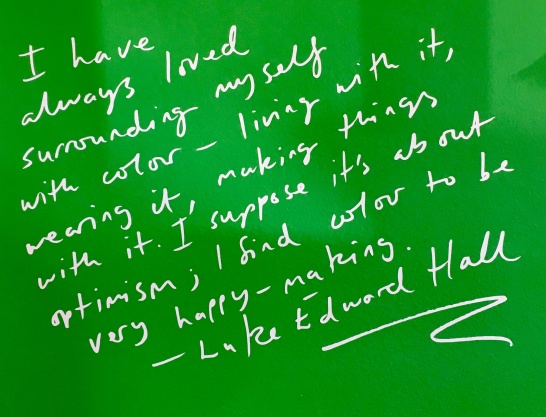 I have
always loved
surrounding myself
with color – living with it,
wearing it, making things
with it. I suppose it's about
optimism; I find color to be
very happy-making.
– Luke Edward Hall